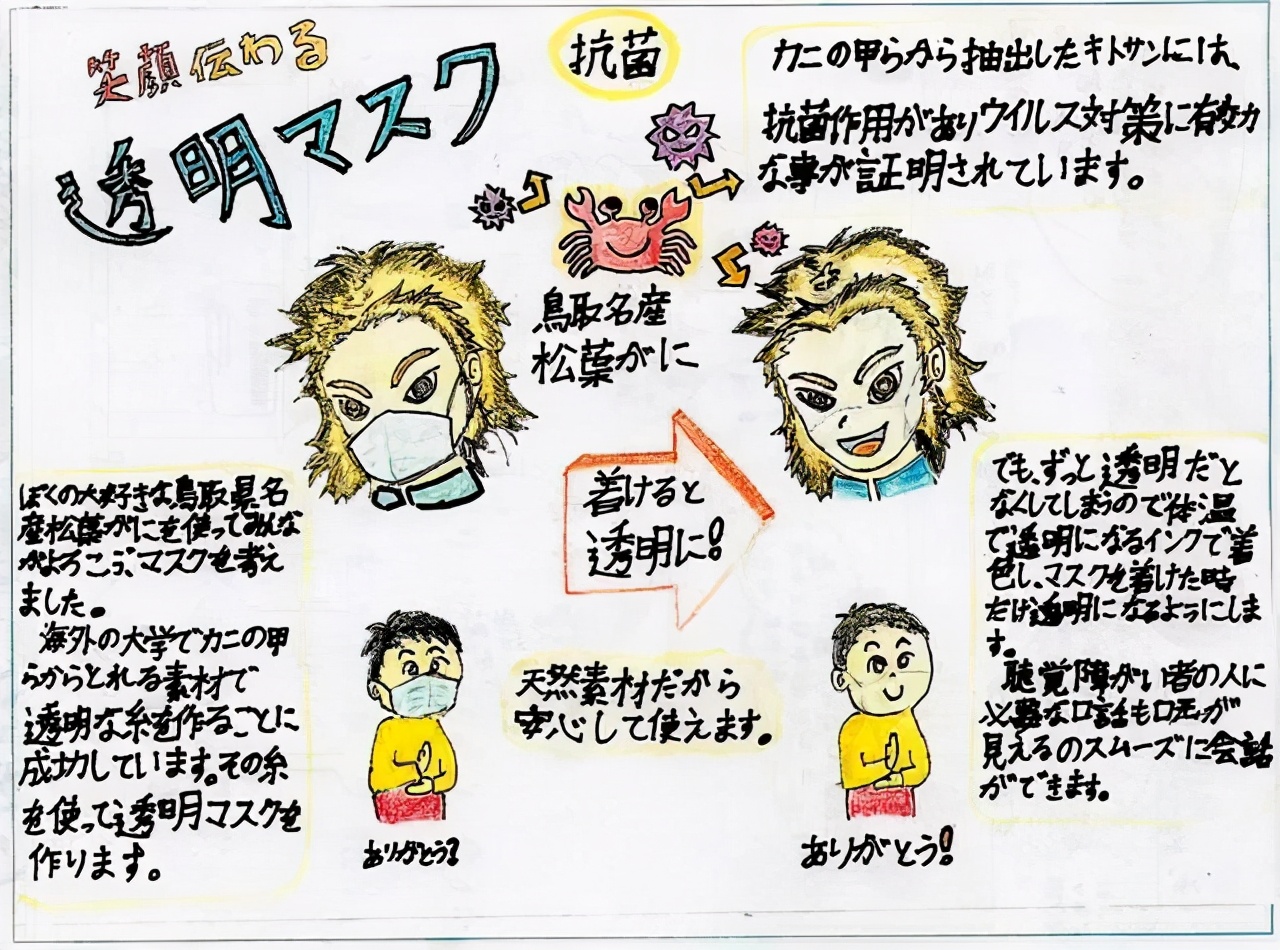 笑顔伝わる
透明マスク
抗菌
カニの甲らから抽出したキトサンには、
抗菌作用がありウイルス対策に有効
な事が証明されています。
鳥取名産
松葉がに
着けると
透明に!
ぼくの大好きな鳥取県名
産松葉がにを使ってみんな
がよろこぶ、マスクを考え
ました。
海外の大学でカニの甲
らからとれる素材で
透明な糸を作ることに
成功しています。その糸
を使って透明マスクを
作ります。
天然素材だから
安心して使えます。
でも、ずっと透明だと
なくしてしまうので体温
で透明になるインクで着
色し、マスクを着けた時
だけ透明になるようにしま
す。
聴覚障がい者の人に
必要な口話も口元が
見えるのスムーズに会話
ができます。
ありがとう!
ありがとう!